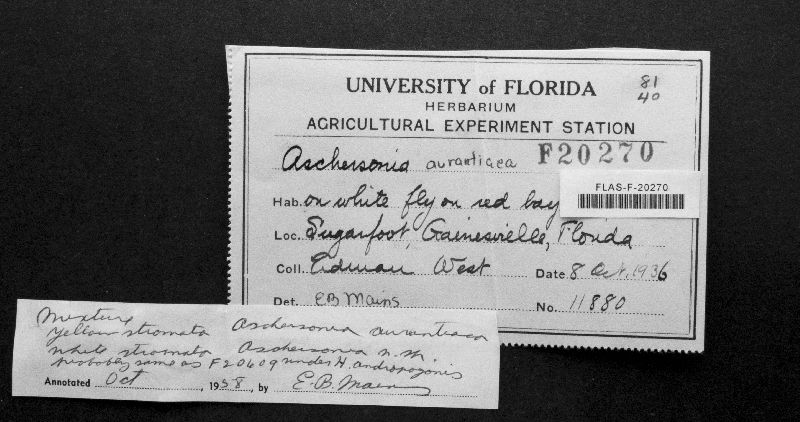 UNIVERSITY of FLORIDA
81
40
HERBARIUM
AGRICULTURAL EXPERIMENT STATION
Aschersonia aurantiaca F20270
FLAS-F-20270
Hab. on white fly on red bay
Loc. Sugarfoot, Gainesville, Florida
Coll. Erdman West Date 8 Oct. 1936
Det. EB Mains No. 11880
Mixture
yellow stromata Aschersonia aurantiaca
white stromata Aschersonia n. sp.
probably same as F20609 under H. andropogonis
Annotated Oct, 1958, by E.B. Mains